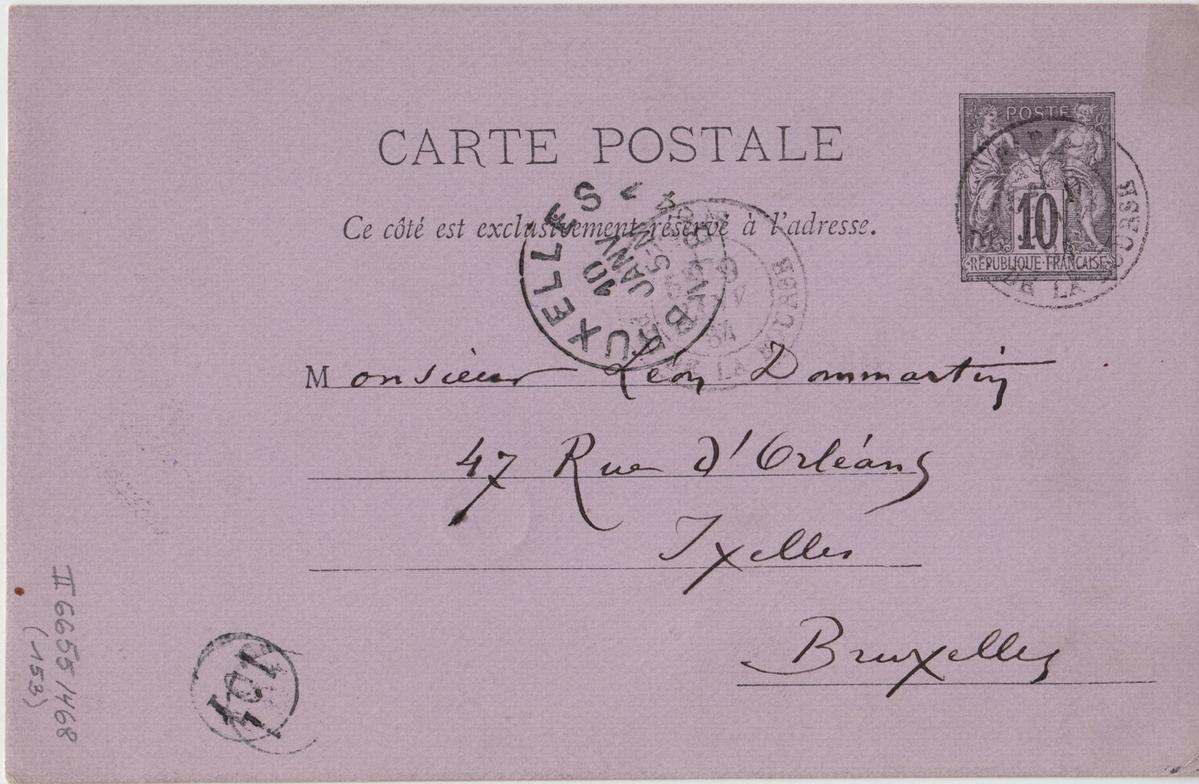 CARTE POSTALE
Ce côté est exclusivement réservé à l'adresse.
POSTE
10
RÉPUBLIQUE FRANÇAISE
DE LA BOURSE
BRUXELLES
10
JANV
5-N
DE LA BOURSE
84
Monsieur Léon Dommartin
47 Rue d'Orléans
Ixelles
Bruxelles
II 6655/468
(153)